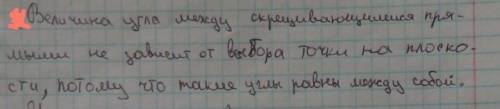 Величина угла между скрещивающимися пря-
мыми не зависит от выбора точки на плоско-
сти, потому что такие углы равны между собой.